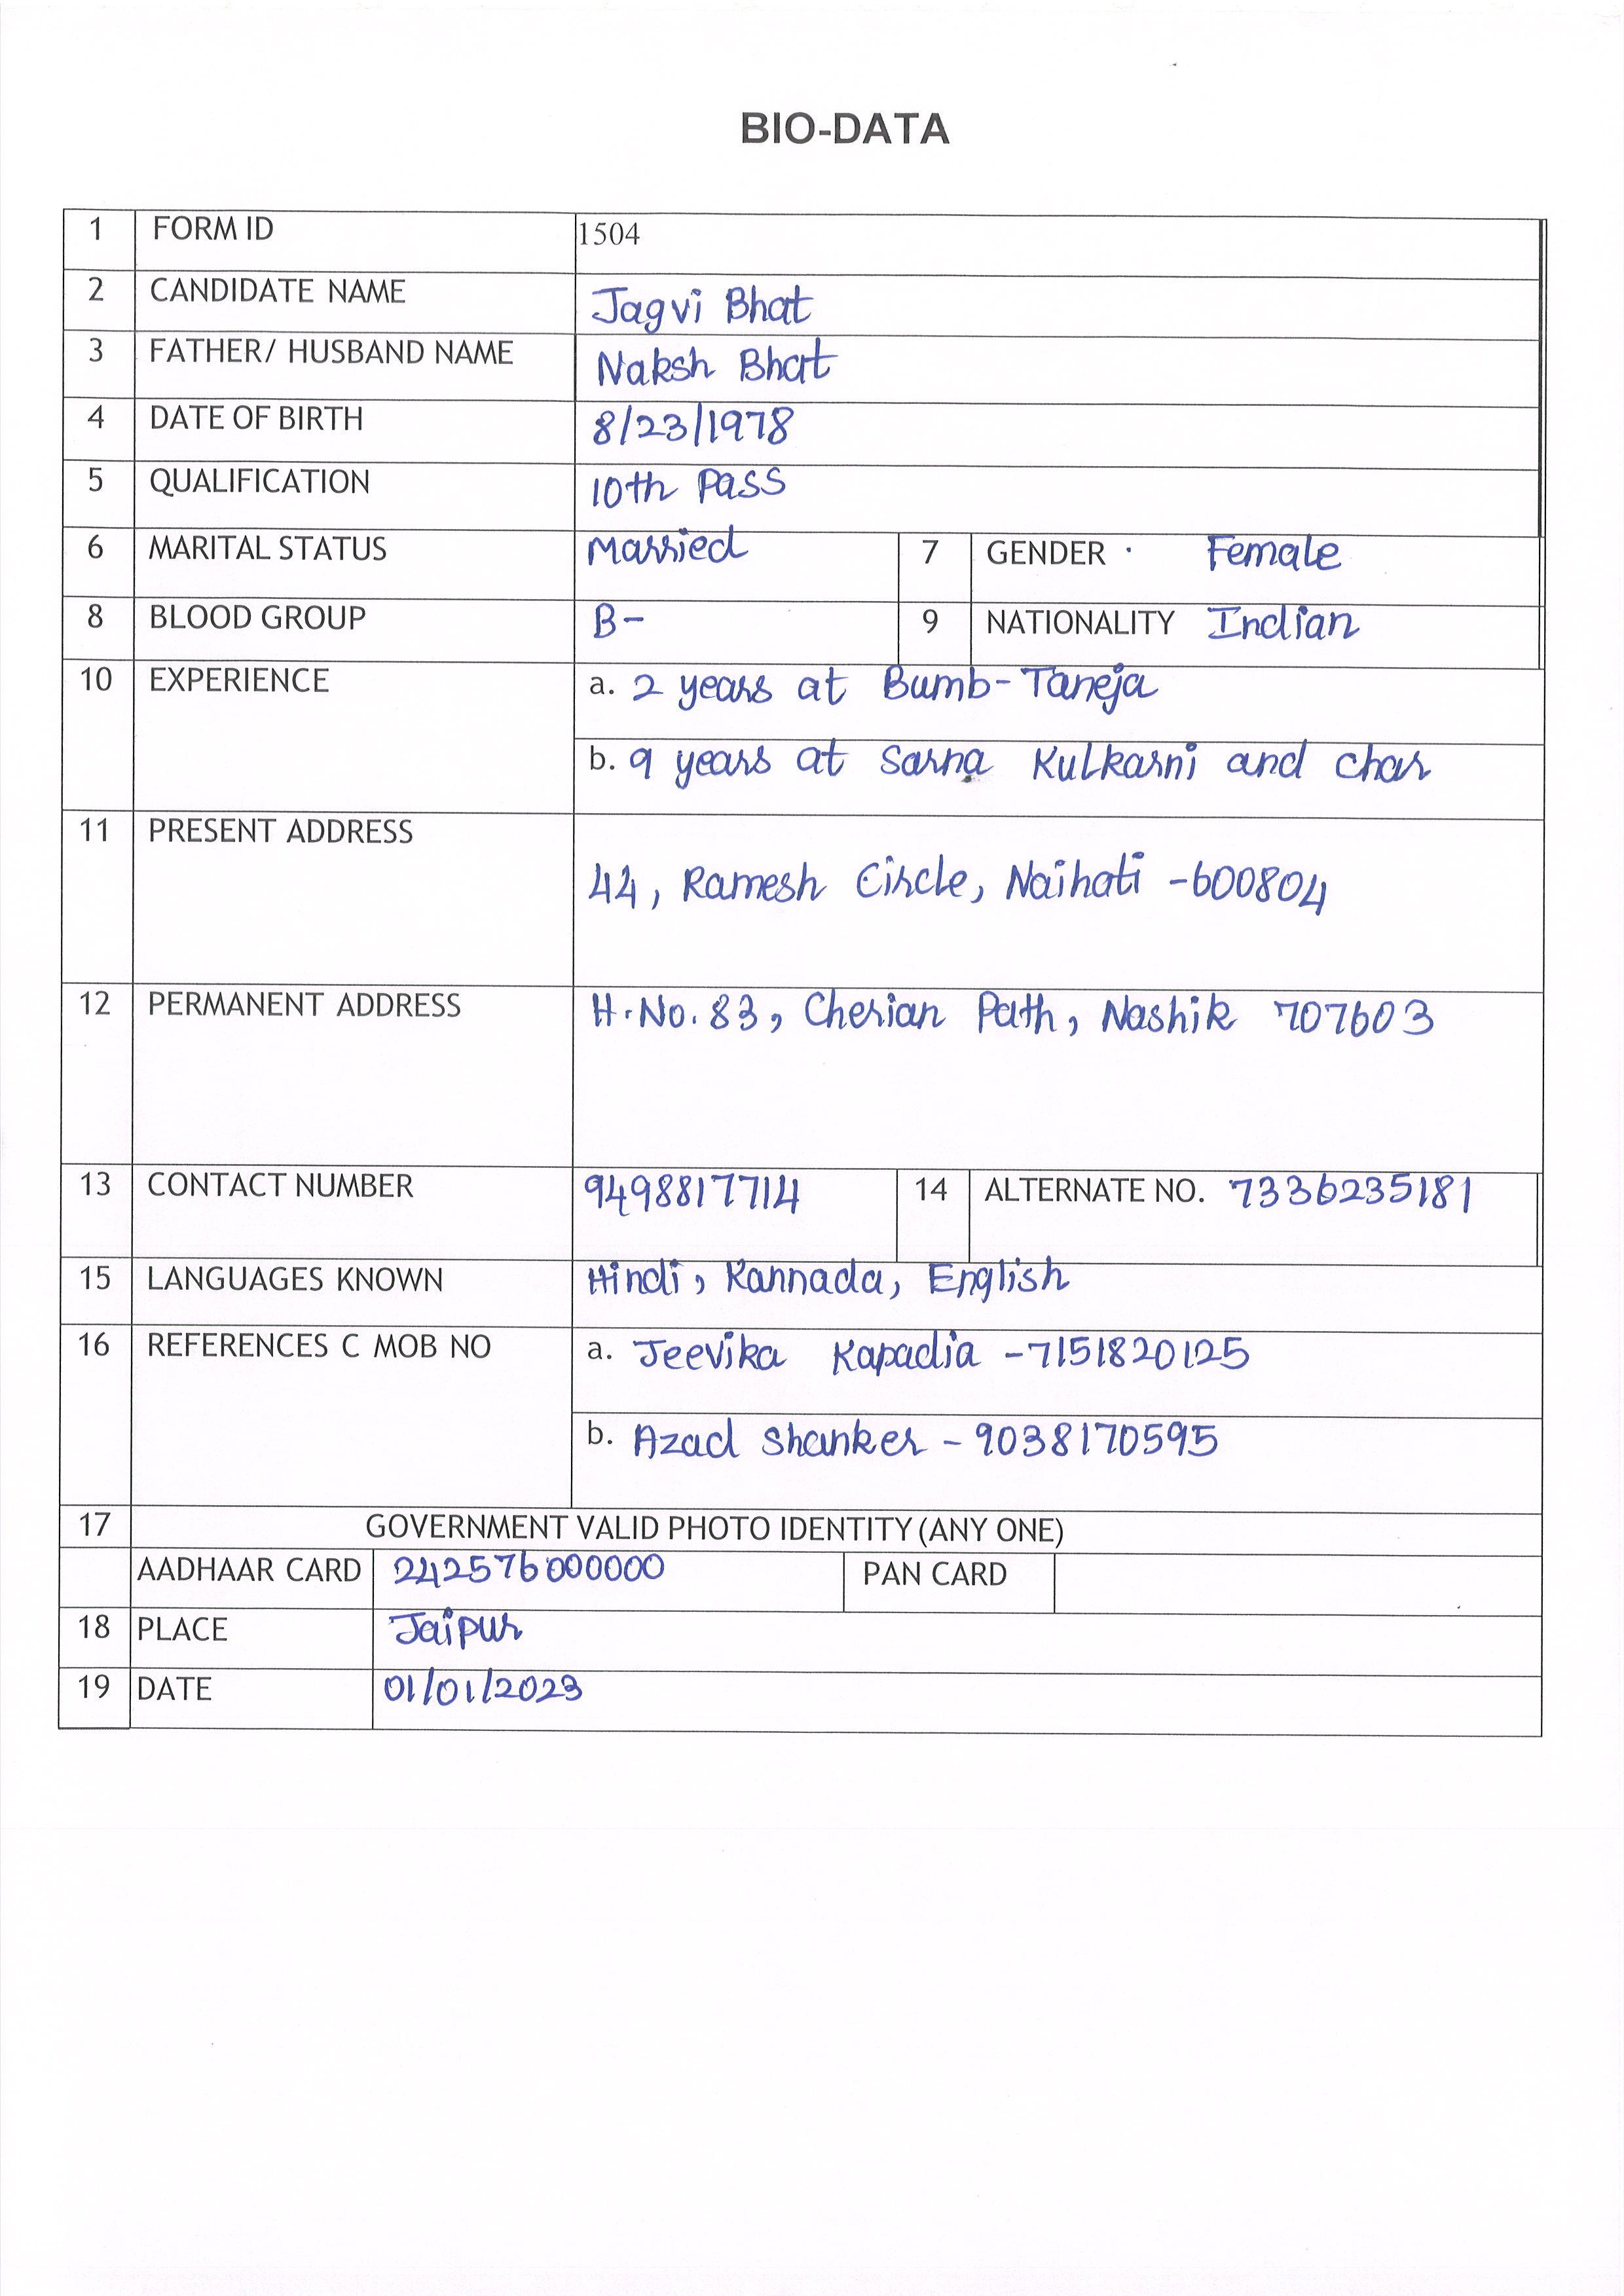 BIO-DATA
1 FORM ID 1504
2 CANDIDATE NAME Jagvi Bhat
3 FATHER/ HUSBAND NAME Naksh Bhat
4 DATE OF BIRTH 8/23/1978
5 QUALIFICATION 10th Pass
6 MARITAL STATUS Married 7 GENDER Female
8 BLOOD GROUP B- 9 NATIONALITY Indian
10 EXPERIENCE a. 2 years at Bumb-Taneja
b. 9 years at Sarna Kulkarni and char
11 PRESENT ADDRESS
44, Ramesh Circle, Naihati -600804
12 PERMANENT ADDRESS H.No. 83, Cherian Path, Nashik 707603
13 CONTACT NUMBER 9498817714 14 ALTERNATE NO. 7336235181
15 LANGUAGES KNOWN Hindi, Kannada, English
16 REFERENCES C MOB NO a. Jeevika Kapadia -7151820125
b. Azad Shanker - 9038170595
17 GOVERNMENT VALID PHOTO IDENTITY (ANY ONE)
AADHAAR CARD 242576000000 PAN CARD
18 PLACE Jaipur
19 DATE 01/01/2023